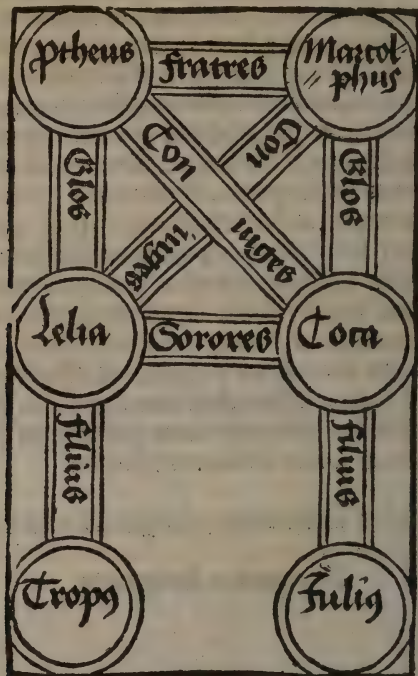 Ptheus
fratres
Marcol
phus
Con
Con
Glos
Glos
iuges
iuges
Lelia
Sorores
Coca
filius
filius
Tropꝯ
Juliꝯ